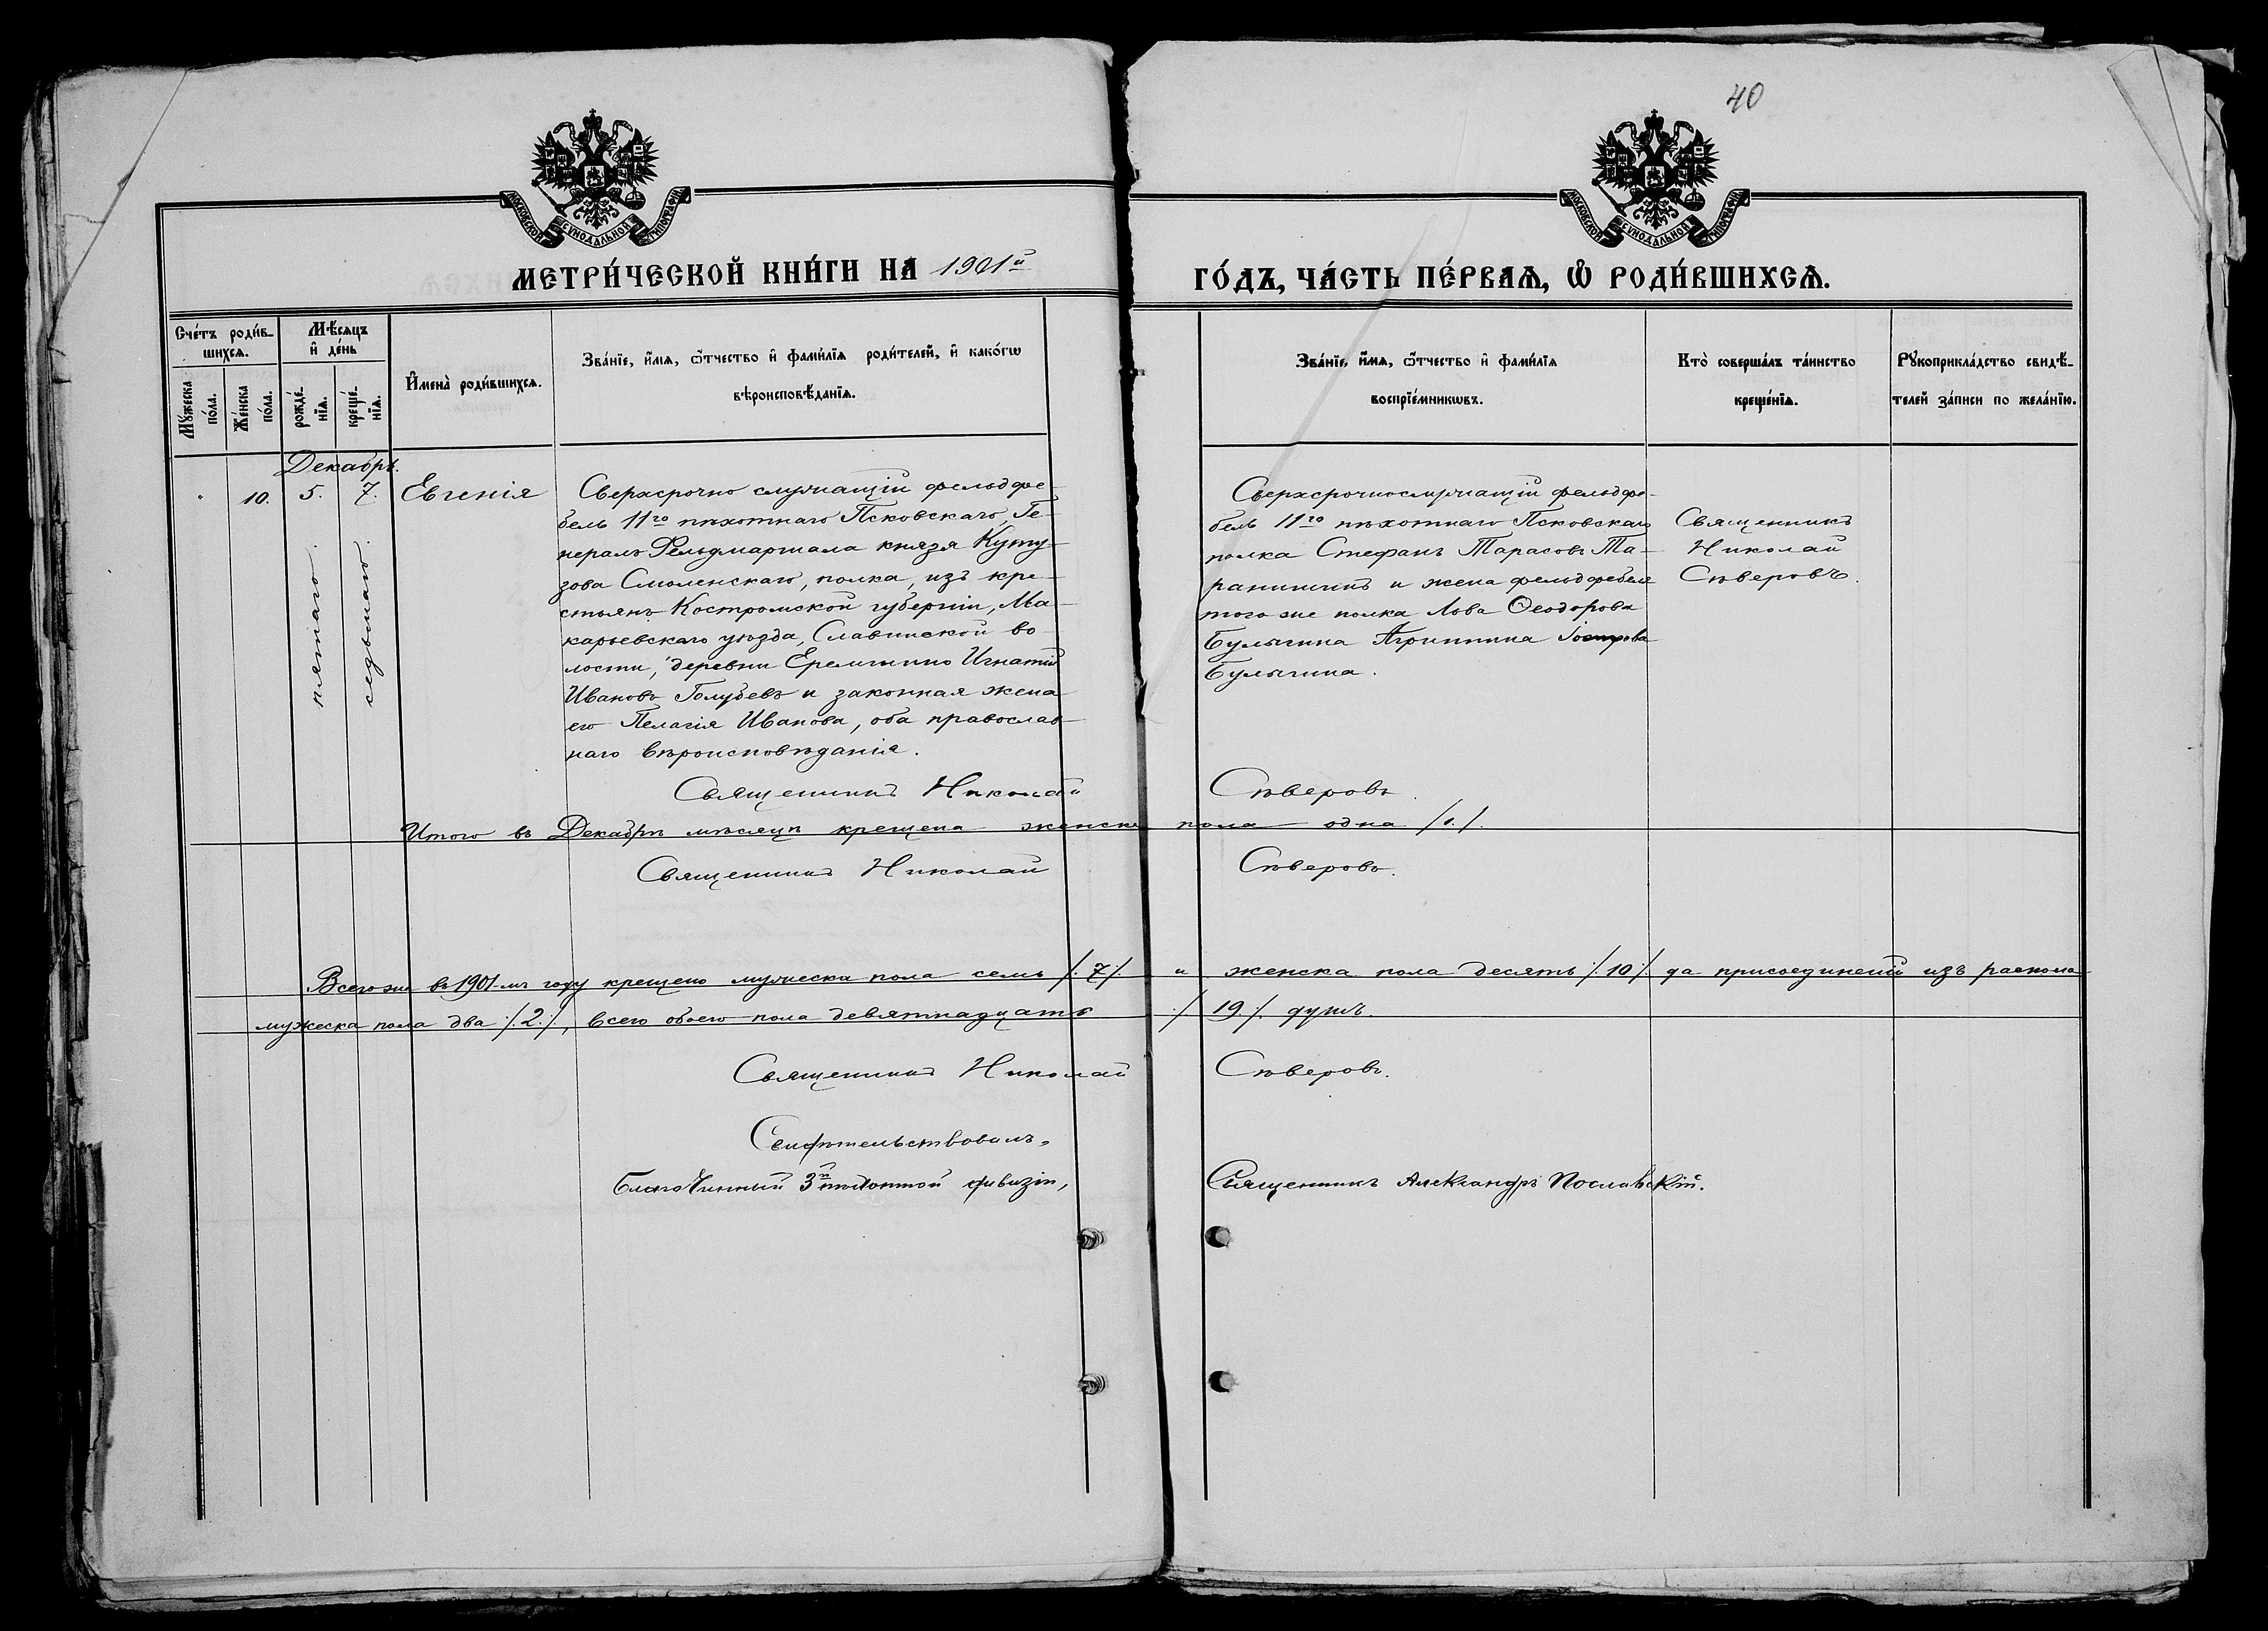 40
МОСКОВСКОЙ СѴНОДАЛЬНОЙ ТИПОГРАФІИ
МОСКОВСКОЙ СѴНОДАЛЬНОЙ ТИПОГРАФІИ
МЕТРИ́ЧЕСКОЙ КНИ́ГИ НА 1901й ГО́ДЪ, ЧА́СТЬ ПЕ́РВАѦ, Ѡ҆ РОДИ́ВШИХСѦ.
Сче́тъ роди́в-
шихсѧ.
Мꙋ́жеска
по́ла.
Же́нска
по́ла.
Мѣ́сѧцъ
и҆ де́нь
рожде́-
нїѧ.
креще́-
нїѧ.
И҆мена̀ роди́вшихсѧ.
Зва́нїе, и҆́мѧ, ѻ҆́тчество и҆ фами́лїѧ роди́телей, и҆ како́гѡ
вѣроисповѣ́данїѧ.
Зва́нїе, и҆́мѧ, ѻ҆́тчество и҆ фами́лїѧ
воспрїе́мникѡвъ.
Кто̀ соверша́лъ та́инство
креще́нїѧ.
Рꙋкоприкла́дство свидѣ́-
телей за́писи по жела́нїю.
Декабрь.
" 10. 5. 7. Евгенія
пятаго.
седьмаго.
Сверхсрочно служащій фельдфе-
бель 11го пѣхотнаго Псковскаго, Ге-
нералъ Фельдмаршала князя Куту-
зова Смоленскаго, полка, изъ кре-
стьянъ Костромской губерніи, Ма-
карьевскаго уѣзда, Славинской во-
лости, деревни Еремкино Игнатій
Ивановъ Голубевъ и законная жена
его Пелагія Иванова, оба православ-
наго вѣроисповѣданія.
Сверхсрочнослужащій фельдфе-
бель 11го пѣхотнаго Псковскаго
полка Стефанъ Тарасовъ Та-
и жена фельдфебеля
того же полка Льва Ѳеодорова
Булыгина Агриппина
Булыгина.
Священникъ
Николай
Сѣверовъ.
Священникъ Николай Сѣверовъ.
Итого въ Декабрѣ мѣсяцѣ крещена женска пола одна /1./.
Священникъ Николай Сѣверовъ.
Всего же въ 1901-мъ году крещено мужеска пола семь /:7:/ и женска пола десять /:10:/ да присоединеній изъ раскола
мужеска пола два /:2:/, всего обоего пола девятнадцать /:19:/. душъ.
Священникъ Николай Сѣверовъ.
Свидѣтельствовалъ.
Благочинный 3й пѣхотной дивизіи, Священникъ Александръ Пославскій.